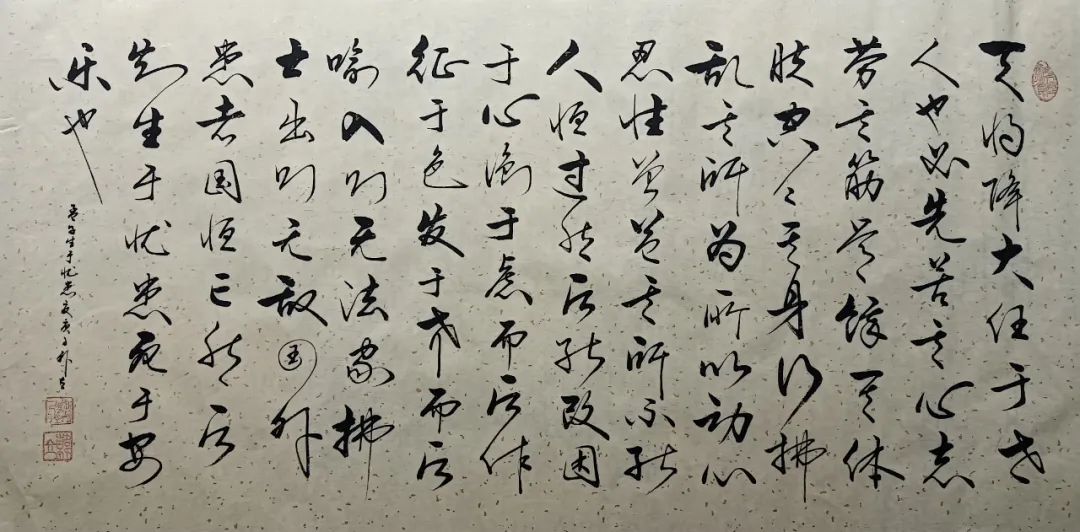 天将降大任于是
人也必先苦其心志
劳其筋骨饿其体
肤空乏其身行拂
乱其所为所以动心
忍性曾益其所不能
人恒过然后能改困
于心衡于虑而后作
征于色发于声而后
喻入则无法家拂
士出则无敌国外
患者国恒亡然后
知生于忧患死于安
乐也
孟子生于忧患